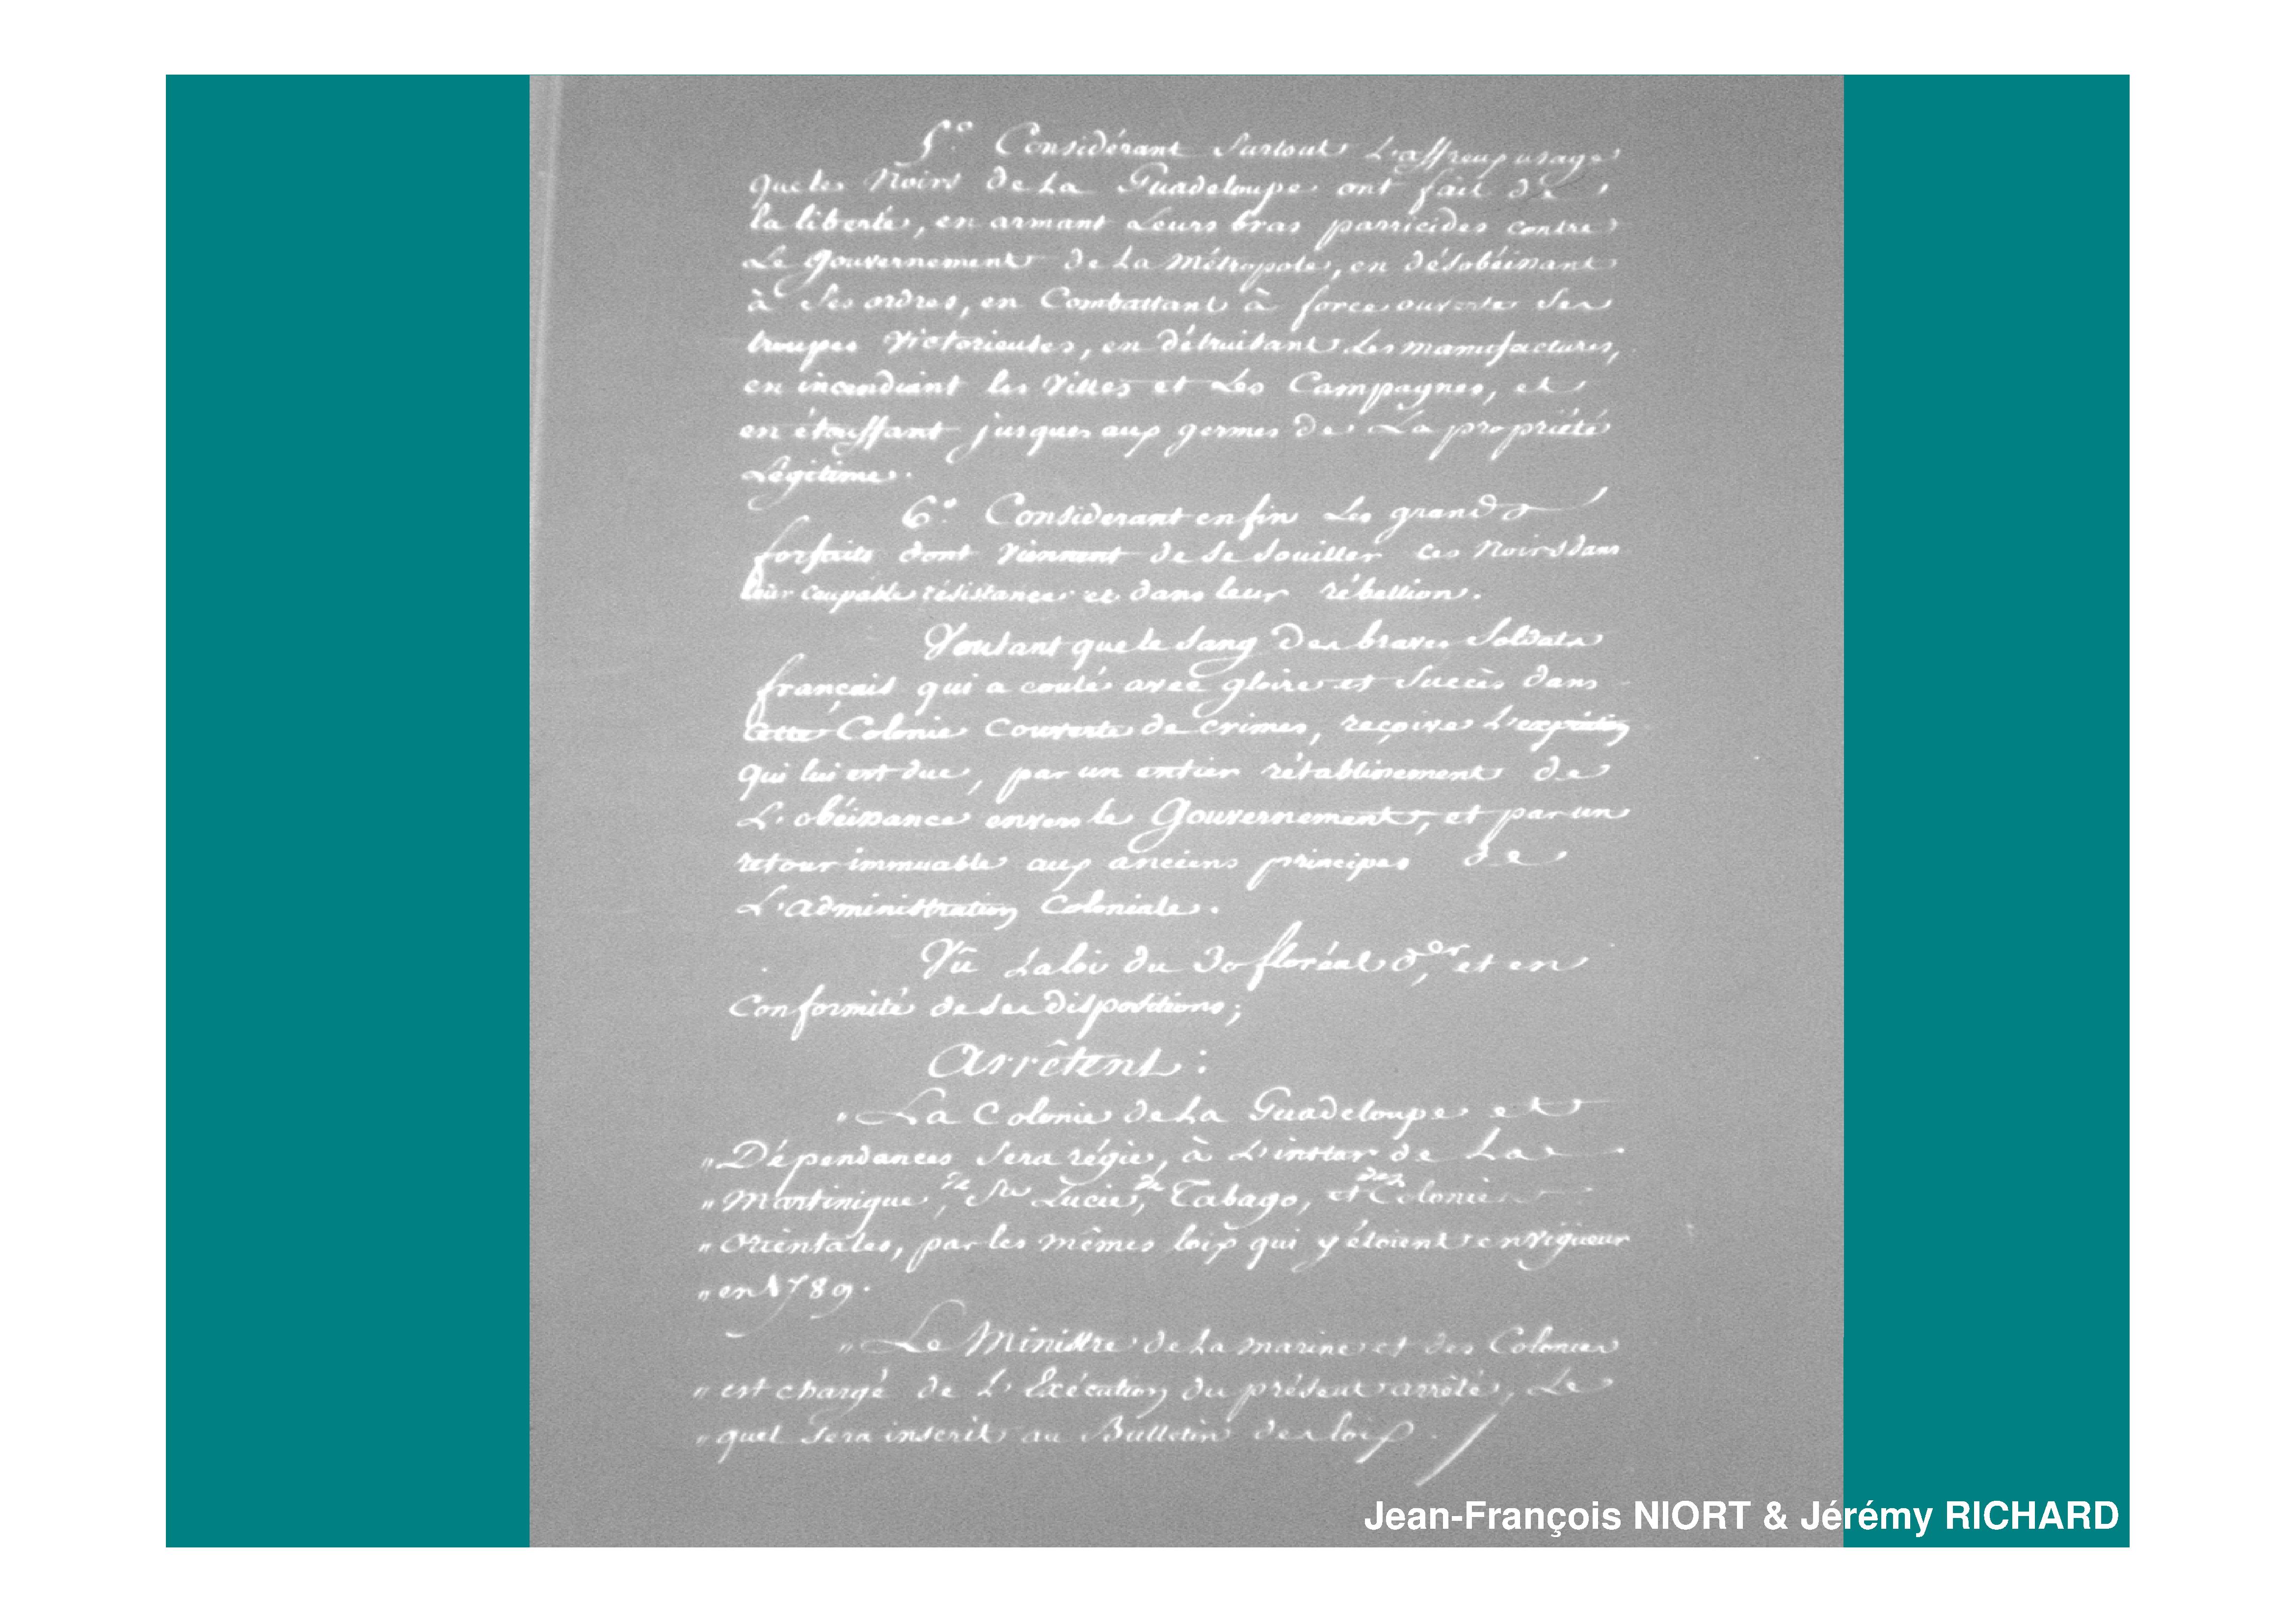 5.° Considérant surtout L'affreux usage
que les Noirs de La Guadeloupe ont fait de
la liberté, en armant Leurs bras parricides contre
Le Gouvernement de La Métropole, en désobéissant
à Ses ordres, en Combattant à force ouverte Ses
troupes Victorieuses, en détruisant Les manufactures,
en incendiant les Villes et Les Campagnes, et
en étouffant jusques aux germes de La propriété
Légitime.
6.° Considerant enfin Les grands
forfaits dont Viennent de Se Souiller ces Noirs dans
leur coupable résistance et dans leur rébellion.
Voulant que le Sang des braves Soldats
français qui a coulé avec gloire et Succès dans
cette Colonie Couverte de crimes, reçoive L'expiation
qui lui est due, par un entier rétablissement de
L'obéissance envers le Gouvernement, et par un
retour immuable aux anciens principes de
L'administration Coloniale.
Vû La loi du 30 floréal d.er et en
Conformité de Ses dispositions;
Arrêtent:
" La Colonie de La Guadeloupe et
" Dépendances Sera régie, à L'instar de La
" Martinique, de Ste Lucie, de Tabago, et des Colonies
" Orientales, par les mêmes loix qui y étoient en vigueur
" en 1789.
" Le Ministre de La marine et des Colonies
" est chargé de L'Exécution du présent arrêté, Le
" quel Sera inscrit au Bulletin des loix.
Jean-François NIORT & Jérémy RICHARD